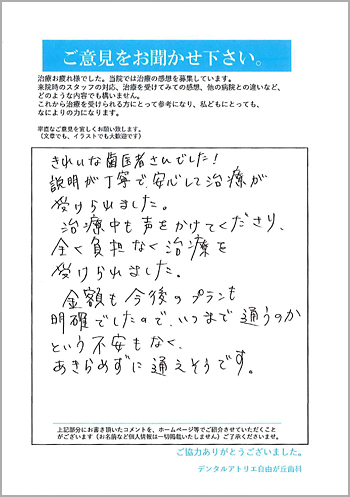 ご意見をお聞かせ下さい。
治療お疲れ様でした。当院では治療の感想を募集しています。
来院時のスタッフの対応、治療を受けてみての感想、他の病院との違いなど、
どのような内容でも構いません。
これから治療を受けられる方にとって参考になり、私どもにとっても、
なによりの力になります。
率直なご意見を宜しくお願い致します。
(文章でも、イラストでも大歓迎です)
きれいな歯医者さんでした!
説明が丁寧で、安心して治療が
受けられました。
治療中も声をかけてくださり、
全く負担なく治療を
受けられました。
金額も今後のプランも
明確でしたので、いつまで通うのか
という不安もなく、
あきらめずに通えそうです。
上記部分にお書き頂いたコメントを、ホームページ等でご紹介させていただくこと
がございます(お名前など個人情報は一切掲載いたしません)ご了承くださいませ。
ご協力ありがとうございました。
デンタルアトリエ自由が丘歯科